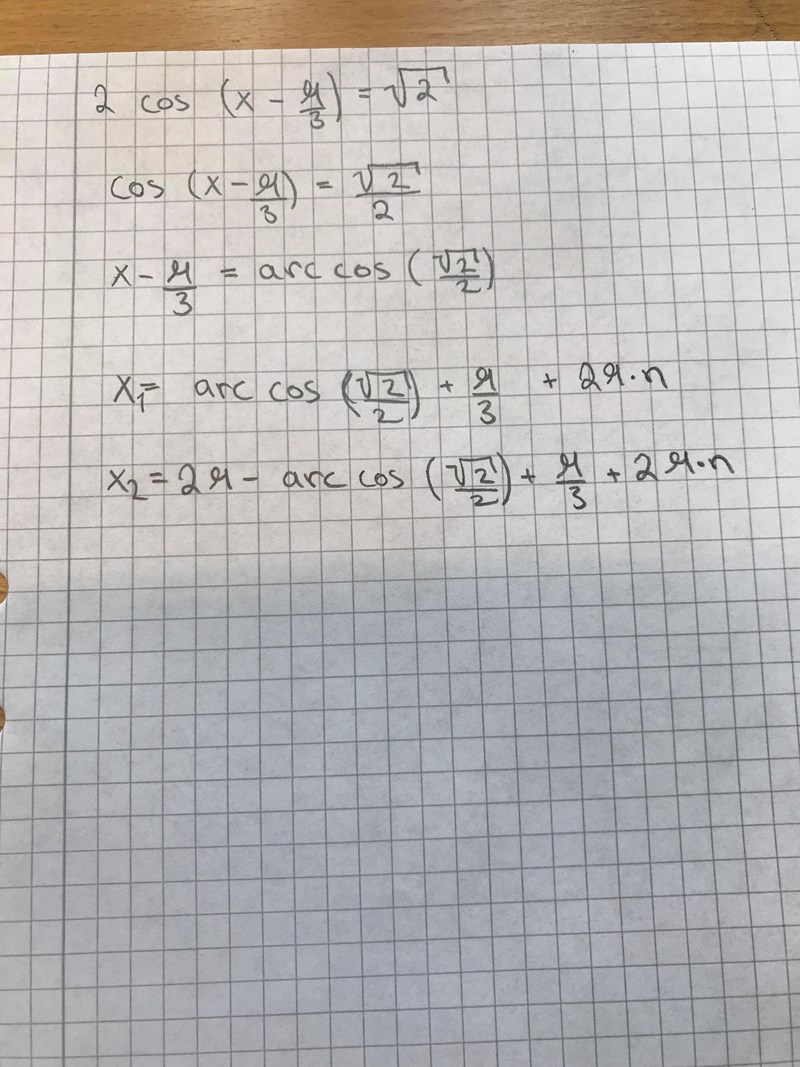 2 cos (x - π/3) = √2
cos (x - π/3) = √2/2
x - π/3 = arc cos (√2/2)
x₁ = arc cos (√2/2) + π/3 + 2π·n
x₂ = 2π - arc cos (√2/2) + π/3 + 2π·n